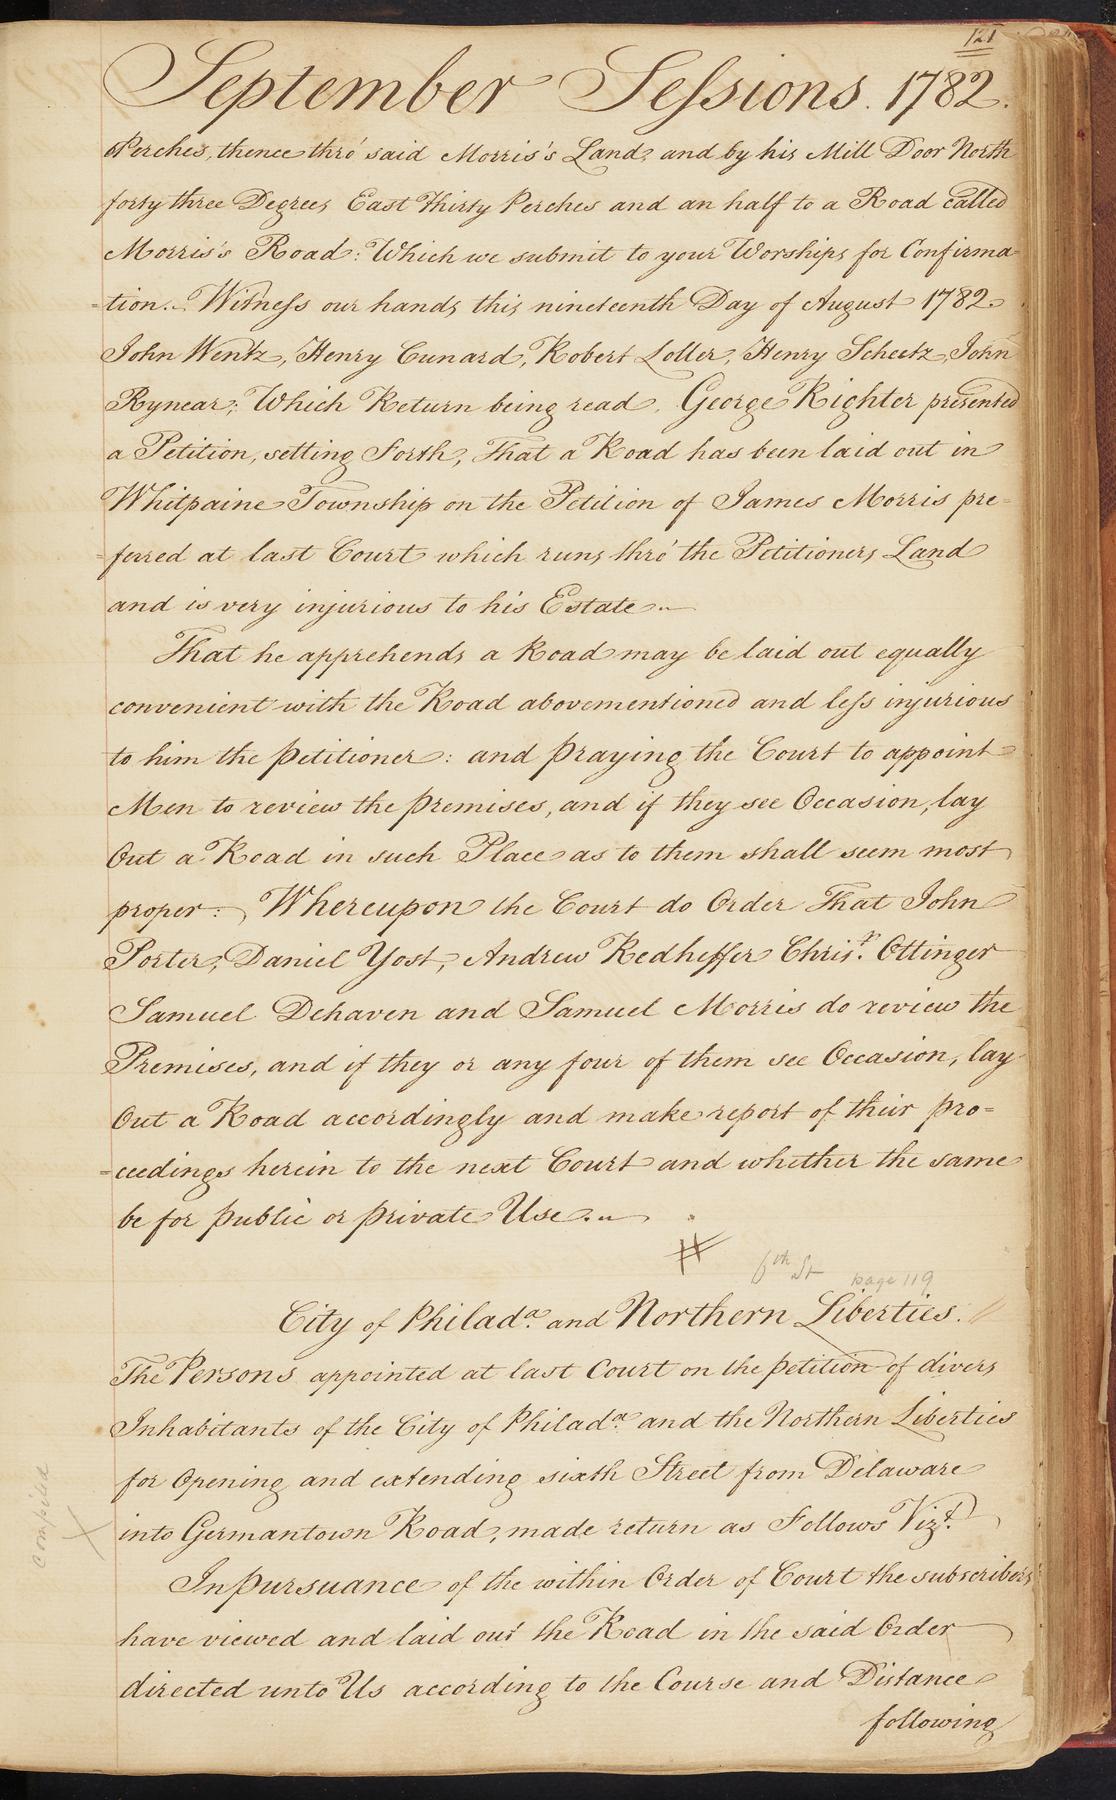 121
September Sessions. 1782.
Perches, thence thro' said Morris's Land, and by his Mill Door North
forty three Degrees East Thirty Perches and an half to a Road called
Morris's Road: Which we submit to your Worships for Confirma-
=tion. Witness our hands this nineteenth Day of August 1782.
John Wentz, Henry Cunard, Robert Loller, Henry Scheetz, John
Rynear; Which Return being read, George Righter presented
a Petition, setting Forth, That a Road has been laid out in
Whitpaine Township on the Petition of James Morris pre=
=ferred at last Court which runs thro' the Petitioners Land
and is very injurious to his Estate.
That he apprehends a Road may be laid out equally
convenient with the Road abovementioned and less injurious
to him the petitioner: and praying the Court to appoint
Men to review the premises, and if they see Occasion, lay
Out a Road in such Place as to them shall seem most
proper: Whereupon the Court do Order That John
Porter, Daniel Yost, Andrew Redheffer Chrisr. Ottinger
Samuel Dehaven and Samuel Morris do review the
Premises, and if they or any four of them see Occasion, lay
Out a Road accordingly and make report of their pro=
=ceedings herein to the next Court and whether the same
be for public or private Use.
#
6th St page 119
City of Philada. and Northern Liberties.
The Persons appointed at last Court on the petition of divers
Inhabitants of the City of Philada. and the Northern Liberties
for Opening and extending sixth Street from Delaware
into Germantown Road, made return as Follows Vizt.
compiled X
In pursuance of the within Order of Court the subscribers
have viewed and laid out the Road in the said Order
directed unto Us according to the Course and Distance
following